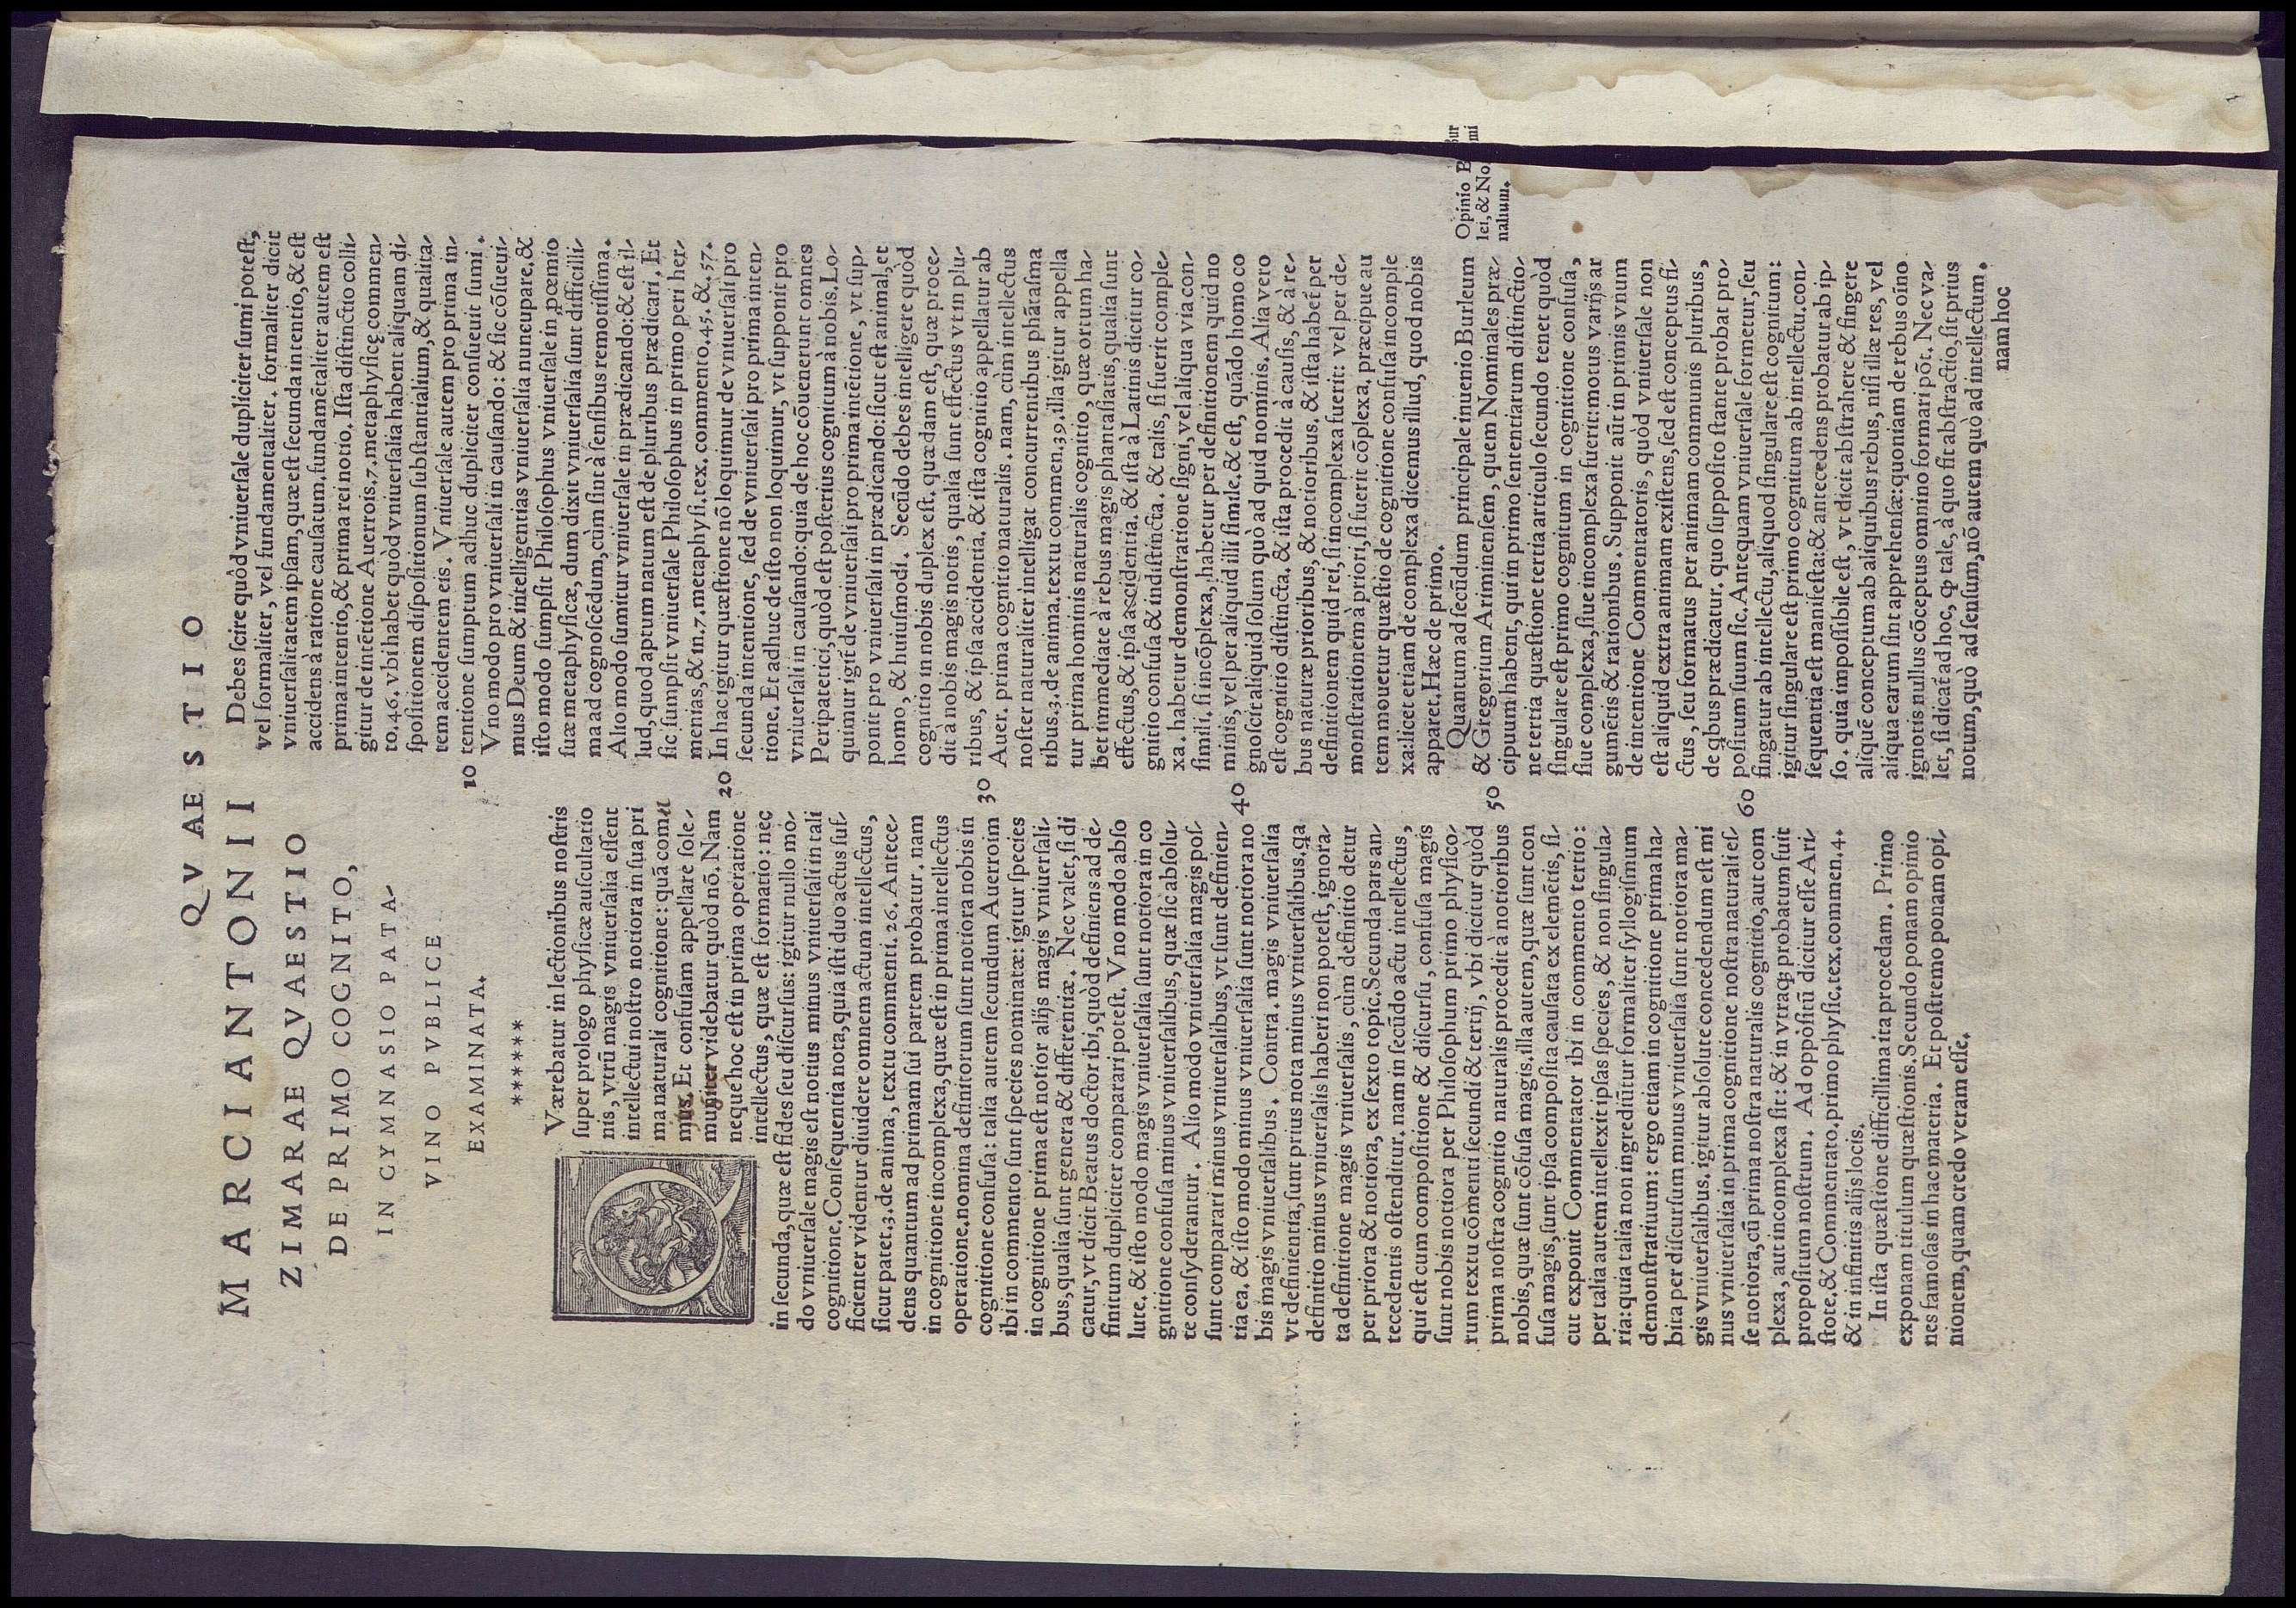 QVAESTIO
MARCIANTONII
ZIMARAE QVAESTIO
DE PRIMO COGNITO,
IN GYMNASIO PATA-
VINO PVBLICE
EXAMINATA.
******
Værebatur in lectionibus noſtris
ſuper prologo phyſicæ auſcultatio
nis, vtrū magis vniuerſalia eſſent
intellectui noſtro notiora in ſua pri
ma naturali cognitione: quā comu
mus. Et confuſam appellare ſole-
muniter videbatur quòd nō. Nam
neque hoc eſt in prima operatione
intellectus, quæ eſt formatio: nec
in ſecunda, quæ eſt fides ſeu diſcurſus: igitur nullo mo-
do vniuerſale magis eſt notius minus vniuerſali in tali
cognitione. Conſequentia nota, quia iſti duo actus ſuf-
ficienter videntur diuidere omnem actum intellectus,
ſicut patet. 3. de anima, textu commenti. 26. Antece-
dens quantum ad primam ſui partem probatur. nam
in cognitione incomplexa, quæ eſt in prima intellectus
operatione. nomina definitorum ſunt notiora nobis in
cognitione confuſa: talia autem ſecundum Auerroim
ibi in commento ſunt ſpecies nominatæ: igitur ſpecies
in cognitione prima eſt notior alijs magis vniuerſali-
bus, qualia ſunt genera & differentiæ. Nec valet, ſi di
catur, vt dicit Beatus doctor ibi, quòd definiens ad de-
finitum dupliciter comparari poteſt. Vno modo abſo
lute. & iſto modo magis vniuerſalia ſunt notiora in co
gnitione confuſa minus vniuerſalibus, quæ ſic abſolu-
te conſyderantur. Alio modo vniuerſalia magis poſ-
ſunt comparari minus vniuerſalibus, vt ſunt definien-
tia ea. & iſto modo minus vniuerſalia ſunt notiora no
bis magis vniuerſalibus. Contra. magis vniuerſalia
vt definientia, ſunt prius nota minus vniuerſalibus. qa
definitio minus vniuerſalis haberi non poteſt, ignora-
ta definitione magis vniuerſalis, cùm definitio detur
per priora & notiora, ex ſexto topic. Secunda pars an-
tecedentis oſtenditur. nam in ſecūdo actu intellectus,
qui eſt cum compoſitione & diſcurſu, confuſa magis
ſunt nobis notiora per Philoſophum primo phyſico-
rum textu cōmenti ſecundi & tertij, vbi dicitur quòd
prima noſtra cognitio naturalis procedit à notioribus
nobis, quæ ſunt cōfuſa magis. illa autem, quæ ſunt con
fuſa magis, ſunt ipſa compoſita cauſata ex elemētis, ſi-
cut exponit Commentator ibi in commento tertio:
per talia autem intellexit ipſas ſpecies, & non ſingula-
ria: quia talia non ingrediūtur formaliter ſyllogiſmum
demonſtratiuum: ergo etiam in cognitione prima ha-
bita per diſcurſum minus vniuerſalia ſunt notiora ma-
gis vniuerſalibus. igitur abſolute concedendum eſt mi
nus vniuerſalia in prima cognitione noſtra naturali eſ-
ſe notiora, cū prima noſtra naturalis cognitio, aut com
plexa, aut incomplexa ſit: & in vtraqȝ probatum fuit
propoſitum noſtrum. Ad oppoſitū dicitur eſſe Ari-
ſtote. & Commentato. primo phyſic. tex. commen. 4.
& in infinitis alijs locis.
In iſta quæſtione difficillima ita procedam. Primo
exponam titulum quæſtionis. Secundo ponam opinio
nes famoſas in hac materia. Et poſtremo ponam opi-
nionem, quam credo veram eſſe.
10
20
30
40
50
60
Debes ſcire quòd vniuerſale dupliciter ſumi poteſt,
vel formaliter, vel fundamentaliter. formaliter dicit
vniuerſalitatem ipſam, quæ eſt ſecunda intentio, & eſt
accidens à ratione cauſatum. fundamētaliter autem eſt
prima intentio, & prima rei notio. Iſta diſtinctio colli-
gitur de intētione Auerrois. 7. metaphyſicę commen-
to. 46. vbi habet quòd vniuerſalia habent aliquam di-
ſpoſitionem diſpoſitionum ſubſtantialium, & qualita-
tem accidentem eis. Vniuerſale autem pro prima in-
tentione ſumptum adhuc dupliciter conſueuit ſumi.
Vno modo pro vniuerſali in cauſando: & ſic cōſueui-
mus Deum & intelligentias vniuerſalia nuncupare. &
iſto modo ſumpſit Philoſophus vniuerſale in, pœmio
ſuæ metaphyſicæ, dum dixit vniuerſalia ſunt difficilli-
ma ad cognoſcēdum, cùm ſint à ſenſibus remotiſſima.
Alio modo ſumitur vniuerſale in prædicando: & eſt il-
lud, quod aptum natum eſt de pluribus prædicari. Et
ſic ſumpſit vniuerſale Philoſophus in primo peri her-
menias, & in. 7. metaphyſi. tex. commento. 45. &. 57.
In hac igitur quæſtione nō loquimur de vniuerſali pro
ſecunda intentione, ſed de vniuerſali pro prima inten-
tione. Et adhuc de iſto non loquimur, vt ſupponit pro
vniuerſali in cauſando: quia de hoc cōuenerunt omnes
Peripatetici, quòd eſt poſterius cognitum à nobis. Lo-
quimur igit̄ de vniuerſali pro prima intētione, vt ſup-
ponit pro vniuerſali in prædicando: ſicut eſt animal, et
homo, & huiuſmodi. Secūdo debes intelligere quòd
cognitio in nobis duplex eſt. quædam eſt, quæ proce-
dit à nobis magis notis, qualia ſunt effectus vt in plu-
ribus, & ipſa accidentia. & iſta cognitio appellatur ab
Auer. prima cognitio naturalis. nam, cùm intellectus
noſter naturaliter intelligat concurrentibus phātaſma
tibus. 3. de anima. textu commen. 39. illa igitur appella
tur prima hominis naturalis cognitio, quæ ortum ha-
bet immediate à rebus magis phantaſiatis, qualia ſunt
effectus, & ipſa accidentia. & iſta à Latinis dicitur co-
gnitio confuſa & indiſtincta. & talis, ſi fuerit comple-
xa. habetur demonſtratione ſigni, vel aliqua via con-
ſimili. ſi incōplexa, habetur per definitionem quid no
minis, vel per aliquid illi ſimile. & eſt, quādo homo co
gnoſcit aliquid ſolum quò ad quid nominis. Alia vero
eſt cognitio diſtincta. & iſta procedit à cauſis, & à re-
bus naturæ prioribus, & notioribus. & iſta habet̄ per
definitionem quid rei, ſi incomplexa fuerit: vel per de-
monſtrationem à priori, ſi fuerit cōplexa. præcipue au
tem mouetur quæſtio de cognitione confuſa incomple
xa: licet etiam de complexa dicemus illud, quod nobis
apparet. Hæc de primo.
Quantum ad ſecūdum principale inuenio Burleum
& Gregorium Ariminenſem, quem Nominales præ-
cipuum habent, qui in primo ſententiarum diſtinctio-
ne tertia quæſtione tertia articulo ſecundo tenet quòd
ſingulare eſt primo cognitum in cognitione confuſa,
ſiue complexa, ſiue incomplexa fuerit: motus varijs ar
gumētis & rationibus. Supponit aūt in primis vnum
de intentione Commentatoris, quòd vniuerſale non
eſt aliquid extra animam exiſtens, ſed eſt conceptus fi-
ctus, ſeu formatus per animam communis pluribus,
de qbus prædicatur. quo ſuppoſito ſtante probat pro-
poſitum ſuum ſic. Antequam vniuerſale formetur, ſeu
fingatur ab intellectu, aliquod ſingulare eſt cognitum:
igitur ſingulare eſt primo cognitum ab intellectu. con-
ſequentia eſt manifeſta: & antecedens probatur ab ip-
ſo. quia impoſſibile eſt, vt dicit abſtrahere & fingere
aliquē conceptum ab aliquibus rebus, niſi illæ res, vel
aliqua earum ſint apprehenſæ: quoniam de rebus oīno
ignotis nullus cōceptus omnino formari pōt. Nec va-
let, ſi dicat̄ ad hoc, ꝙ tale, à quo fit abſtractio, ſit prius
notum, quò ad ſenſum, nō autem quò ad intellectum.
nam hoc
Opinio Bur
lei, & Nomi
nalium.